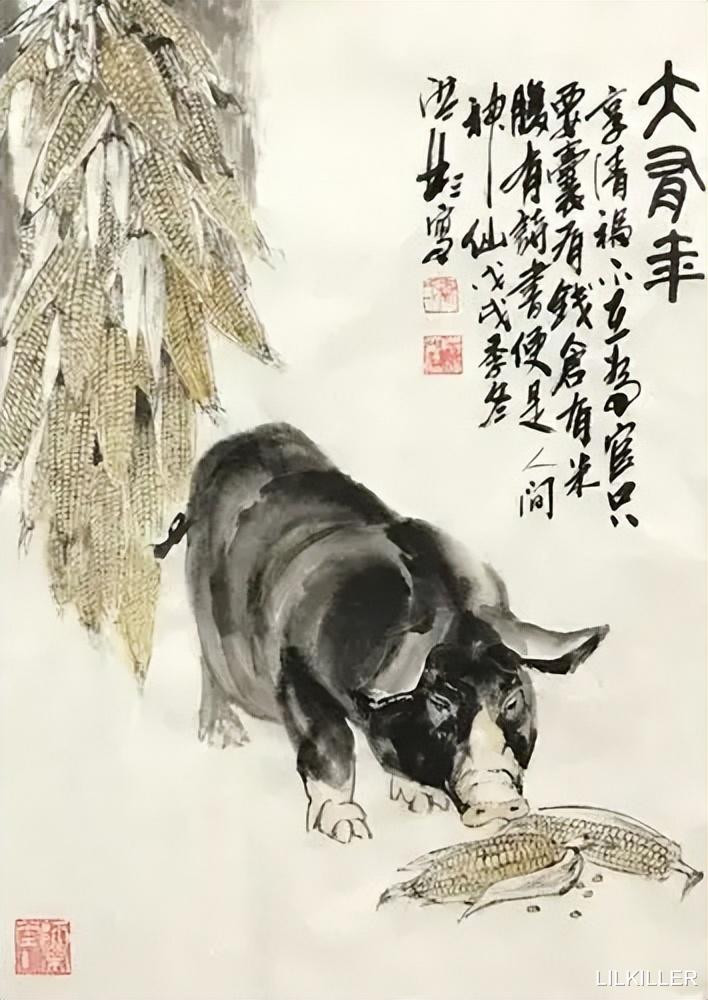 大有年
享清福不在為官只
要囊有錢倉有米
腹有詩書便是人間
神仙戊戌季冬
寫
LILKILLER